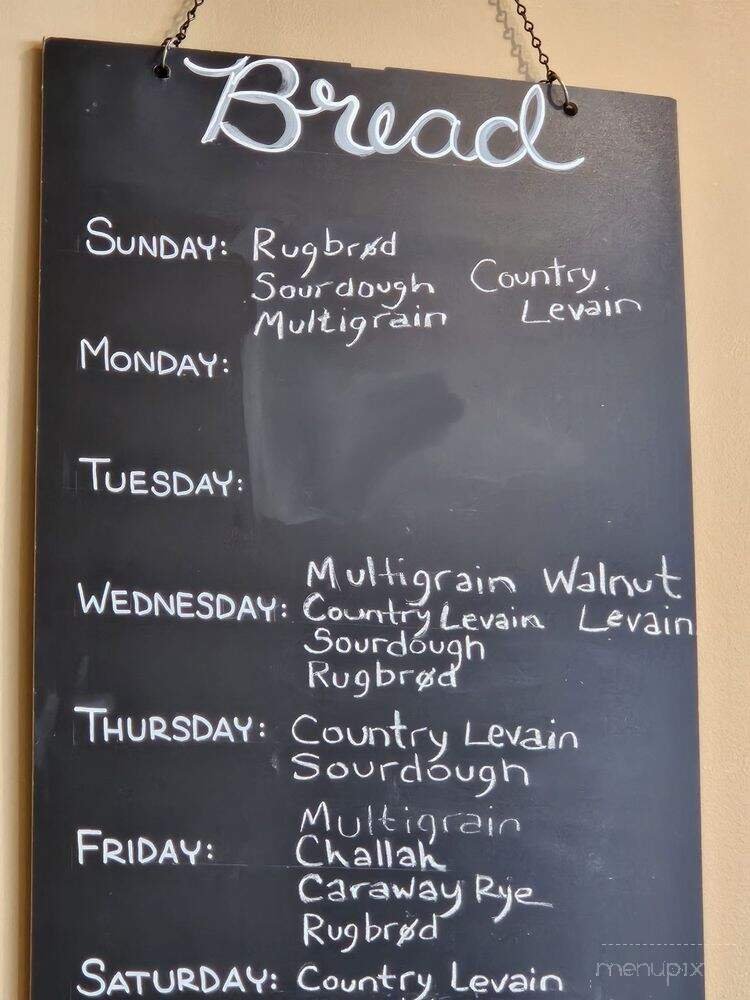 Bread
SUNDAY: Rugbrød
Sourdough Country
Multigrain Levain
MONDAY:
TUESDAY:
Multigrain Walnut
WEDNESDAY: Country Levain Levain
Sourdough
Rugbrød
THURSDAY: Country Levain
Sourdough
Multigrain
FRIDAY: Challah
Caraway Rye
Rugbrød
SATURDAY: Country Levain
menupix